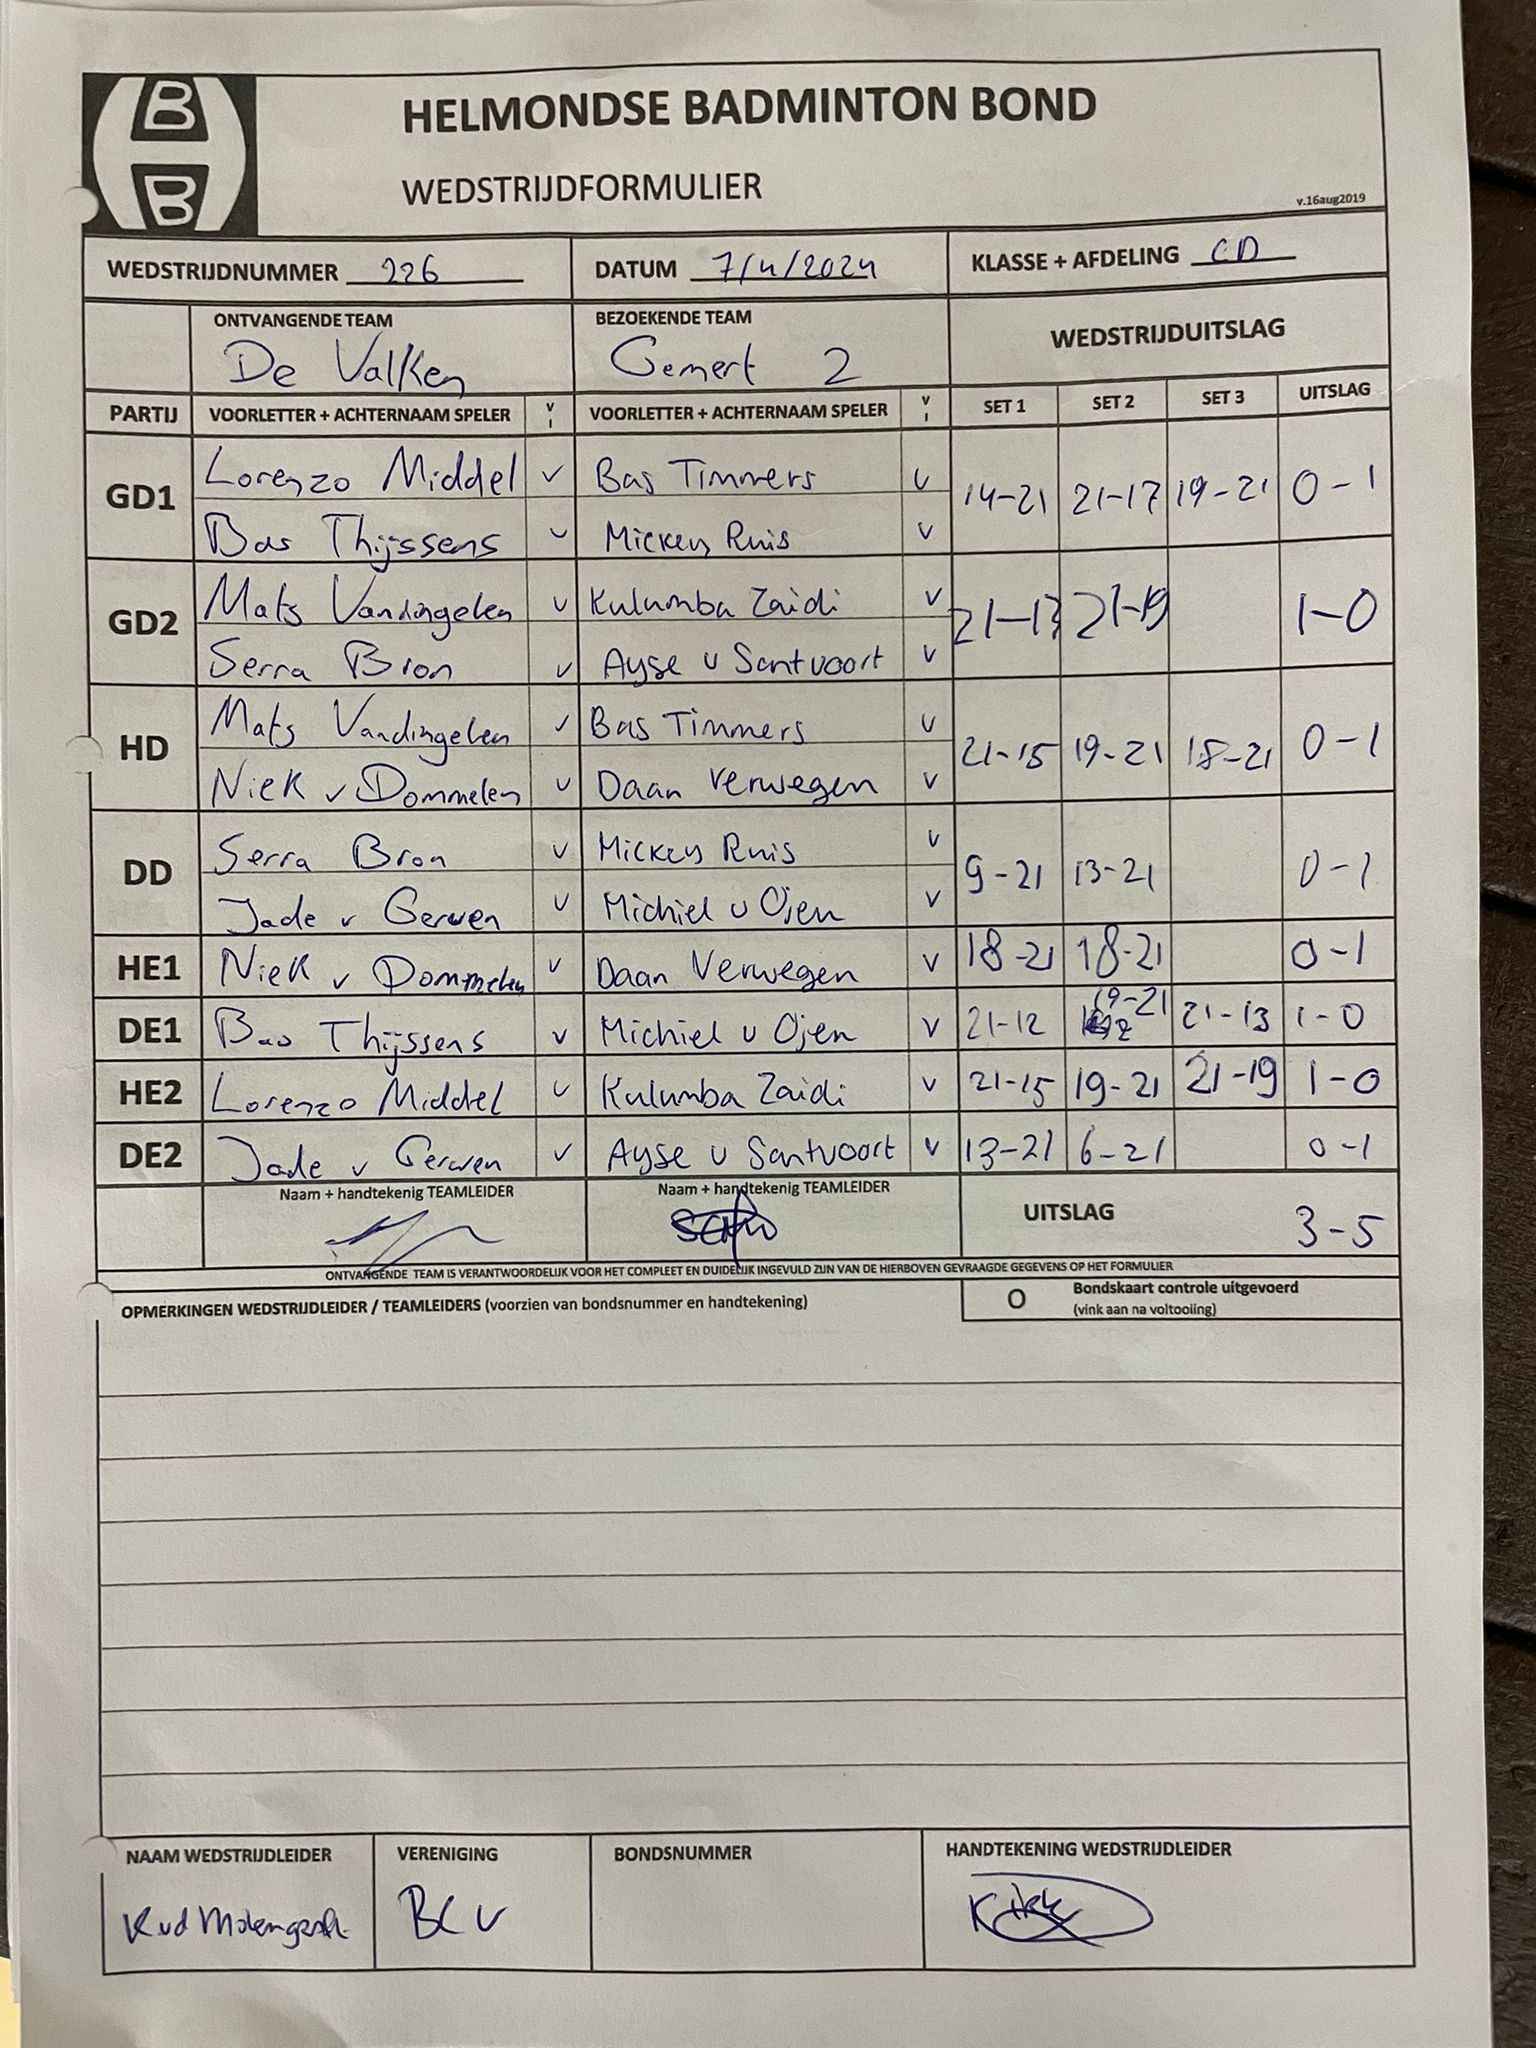 B
B
HELMONDSE BADMINTON BOND
WEDSTRIJDFORMULIER
v.16aug2019
WEDSTRIJDNUMMER 226 DATUM 7/4/2024 KLASSE + AFDELING CD
ONTVANGENDE TEAM BEZOEKENDE TEAM WEDSTRIJDUITSLAG
De Valken Gemert 2
PARTIJ VOORLETTER + ACHTERNAAM SPELER V I VOORLETTER + ACHTERNAAM SPELER V I SET 1 SET 2 SET 3 UITSLAG
GD1 Lorenzo Middel v Bas Timmers v 14-21 21-17 19-21 0-1
Bas Thijssens v Mickey Ruis v
GD2 Mats Vandingelen v Kulumba Zaidi v 21-13 21-19 1-0
Serra Bron v Ayse v Santvoort v
HD Mats Vandingelen v Bas Timmers v 21-15 19-21 18-21 0-1
Niek v Dommelen v Daan Verwegen v
DD Serra Bron v Mickey Ruis v 9-21 13-21 0-1
Jade v Gerwen v Michiel v Ojen v
HE1 Niek v Dommelen v Daan Verwegen v 18-21 18-21 0-1
DE1 Bas Thijssens v Michiel v Ojen v 21-12 19-21 21-13 1-0
HE2 Lorenzo Middel v Kulumba Zaidi v 21-15 19-21 21-19 1-0
DE2 Jade v Gerwen v Ayse v Santvoort v 13-21 6-21 0-1
Naam + handtekenig TEAMLEIDER Naam + handtekenig TEAMLEIDER UITSLAG 3-5
ONTVANGENDE TEAM IS VERANTWOORDELIJK VOOR HET COMPLEET EN DUIDELIJK INGEVULD ZIJN VAN DE HIERBOVEN GEVRAAGDE GEGEVENS OP HET FORMULIER
OPMERKINGEN WEDSTRIJDLEIDER / TEAMLEIDERS (voorzien van bondsnummer en handtekening) O Bondskaart controle uitgevoerd
(vink aan na voltooiing)
NAAM WEDSTRIJDLEIDER VERENIGING BONDSNUMMER HANDTEKENING WEDSTRIJDLEIDER
K vd BCV